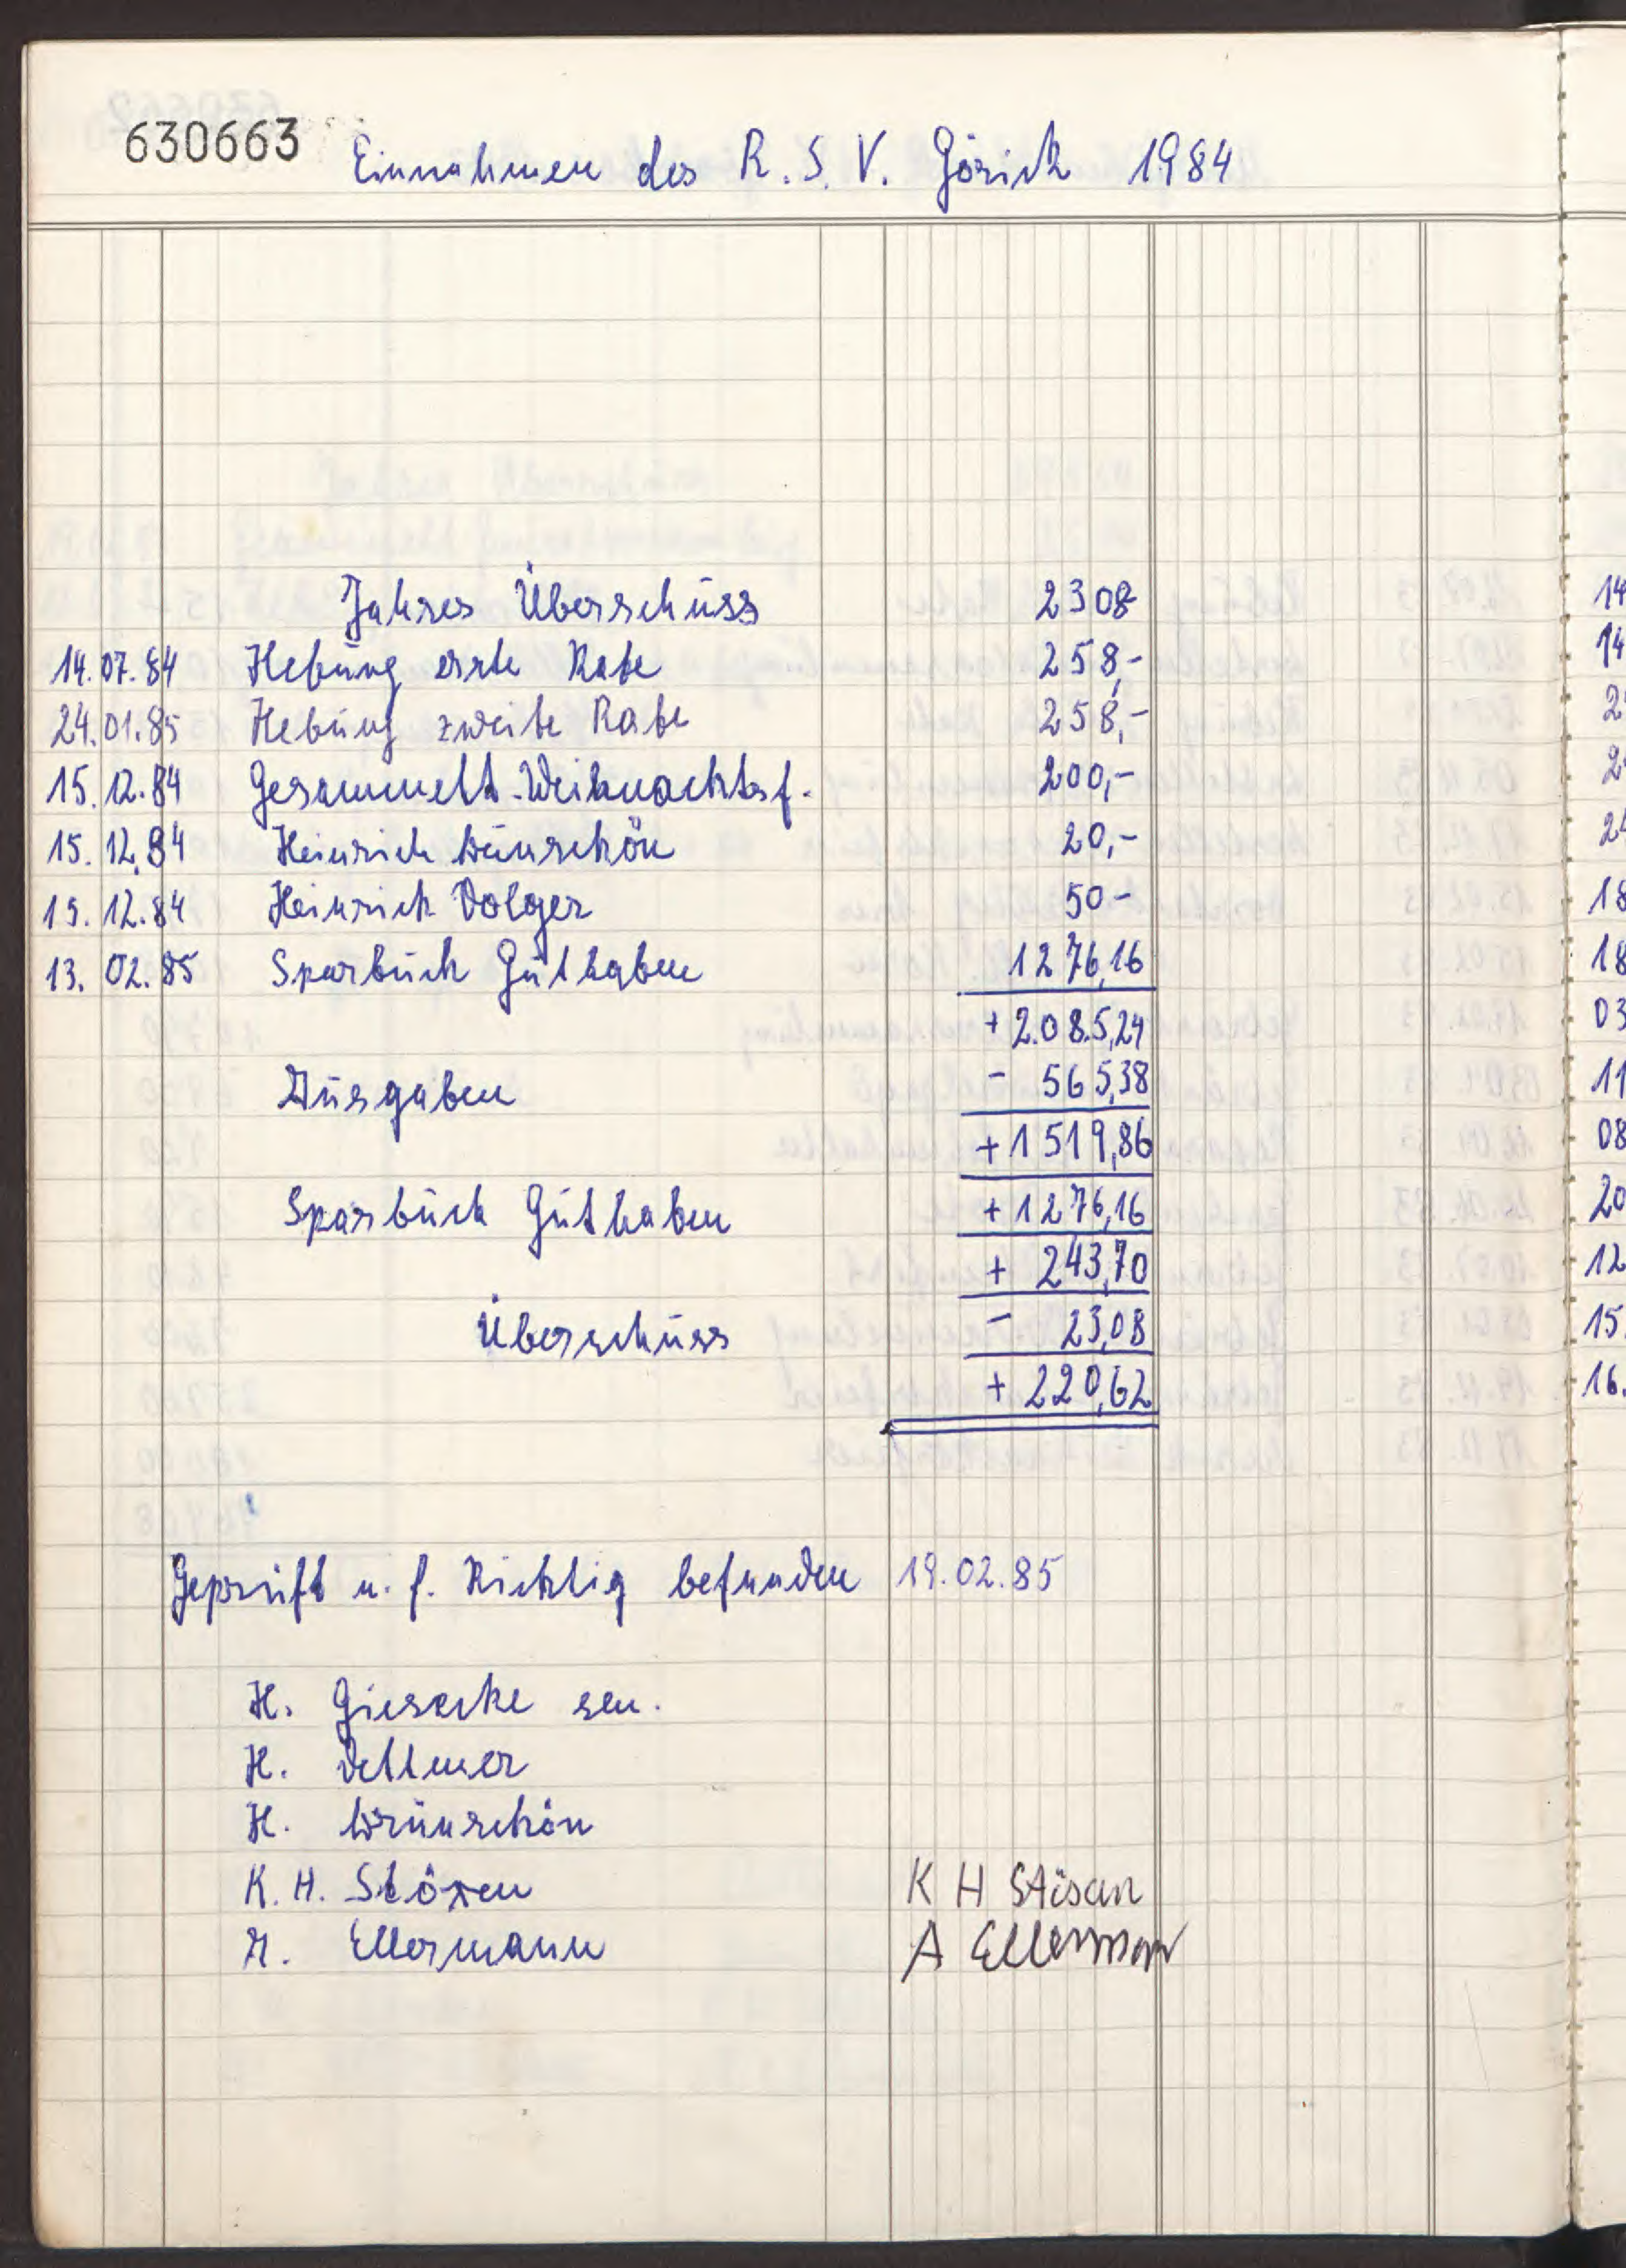 630663 Einnahmen des R. S. V. Görick 1984
Jahres Überschuss 2308
14.07.84 Hebung erste Rate 258,-
24.01.85 Hebung zweite Rate 258,-
15.12.84 Gesammelt-Weihnachtsf. 200,-
15.12.84 Heinrich Wünschön 20,-
15.12.84 Heinrich Dolger 50-
13.02.85 Sparbuch Guthaben 1276,16
+ 2.085,24
Ausgaben - 565,38
+ 1519,86
Sparbuch Guthaben + 1276,16
+ 243,70
Überschuss - 23,08
+ 220,62
Geprüft u. f. Richtig befunden 19.02.85
H. Giesecke sen.
H. Dettmer
H. Wrünschön
K. H. Stöxen K H Stösan
A. Ellermann A Ellermann
14
14
2
2
24
18
18
03
11
08
20
12
15.
16.